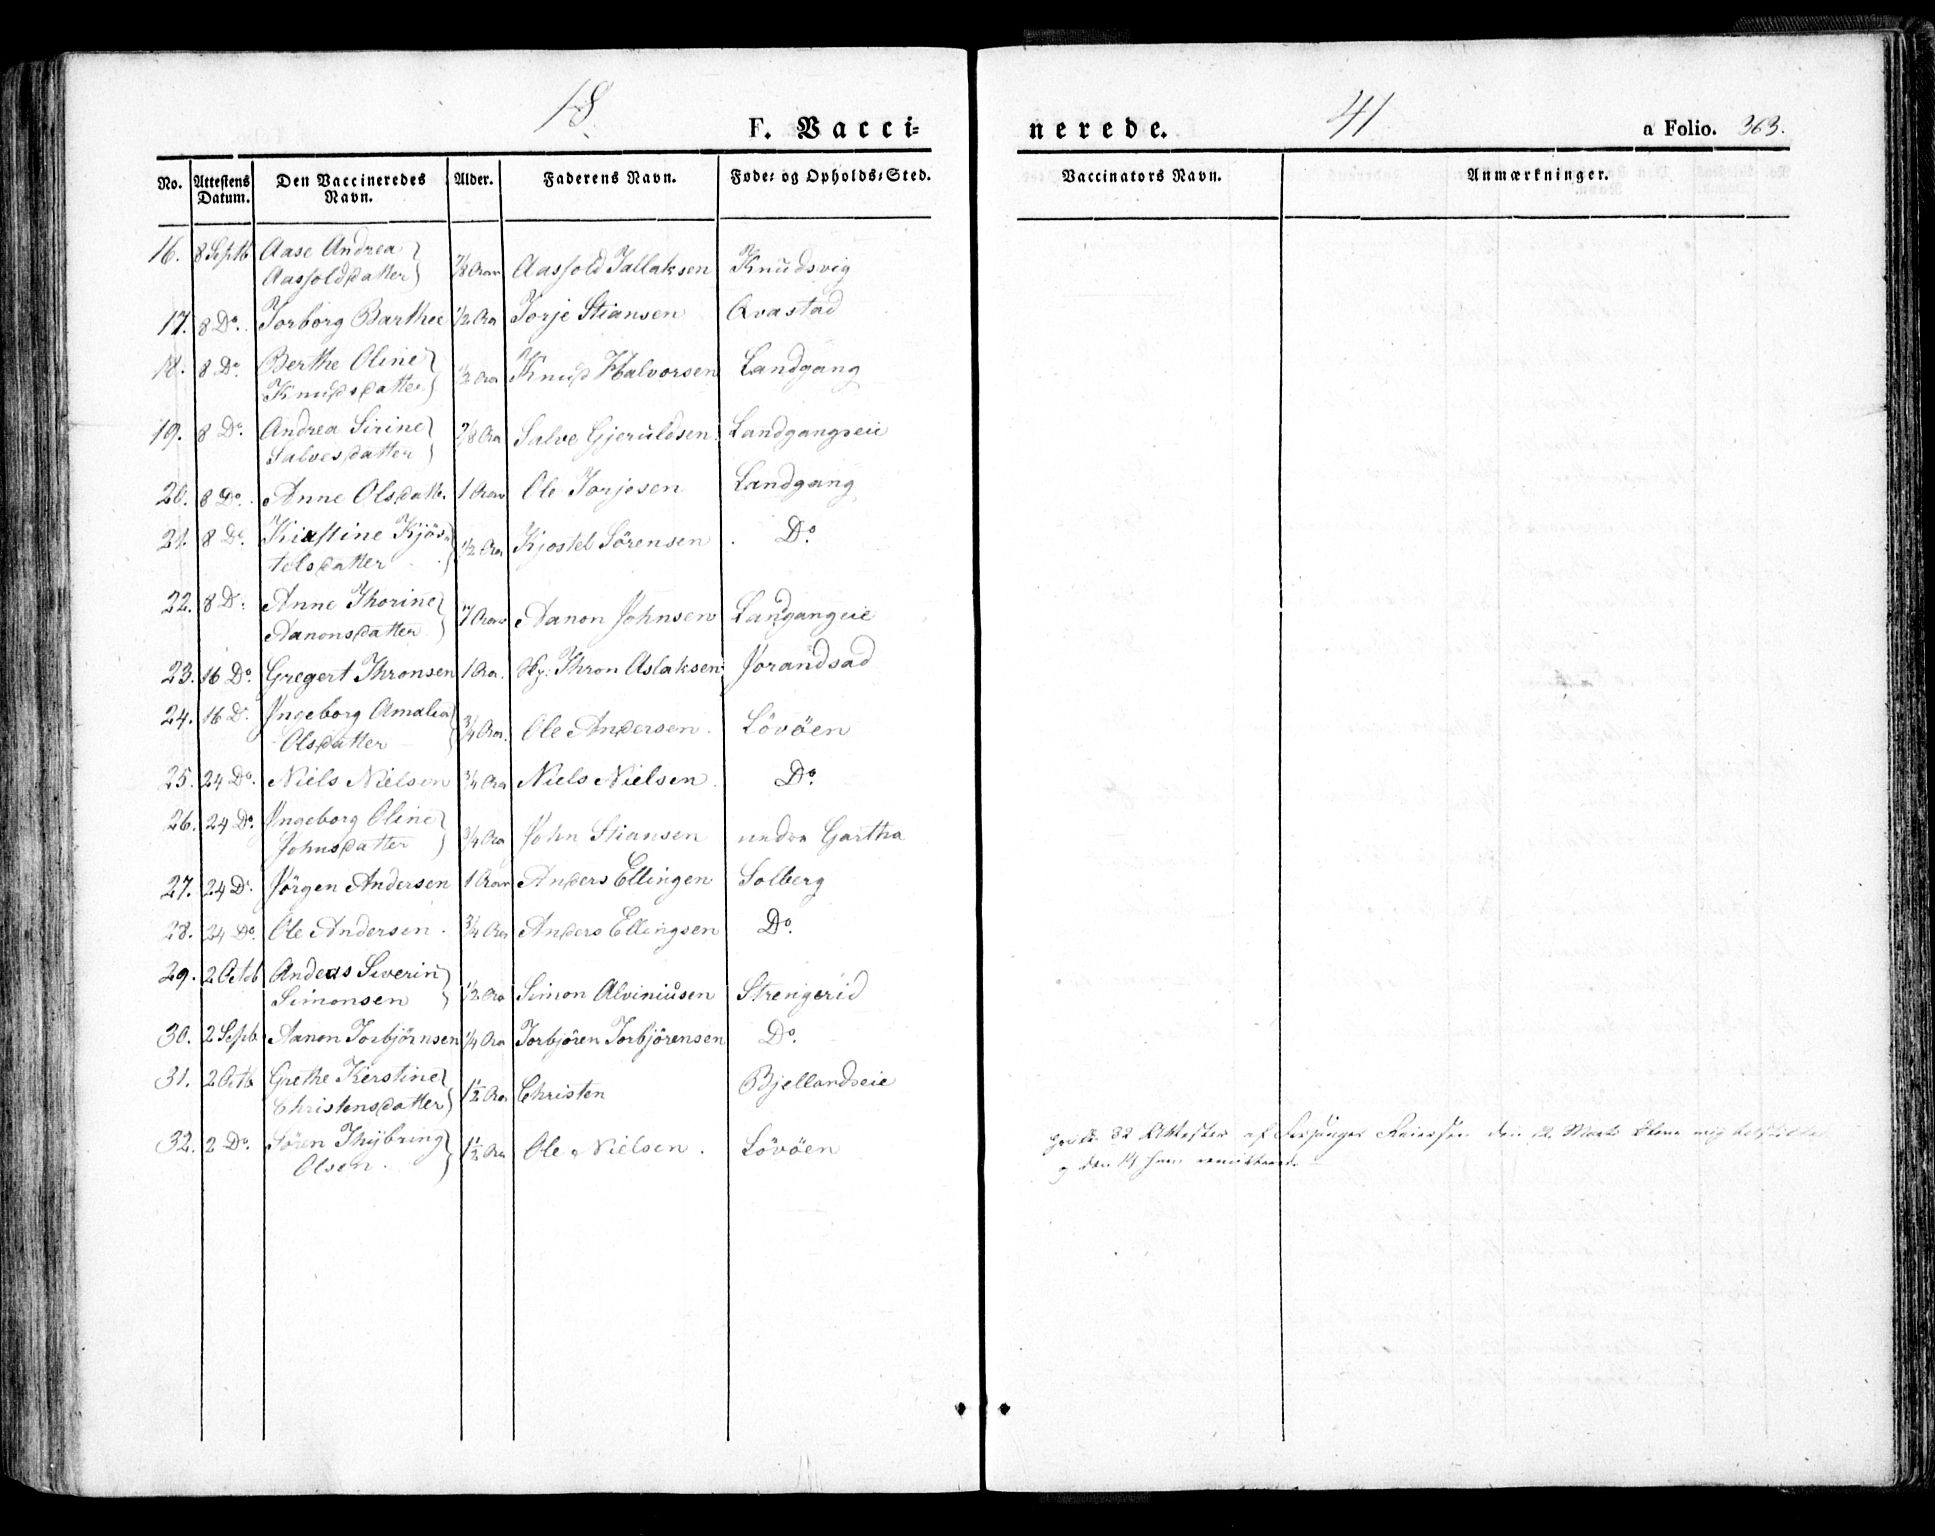 18 41
F. Vacci= nerede. a Folio. 363.
No. Attestens Datum. Den Vaccineredes Navn. Alder. Faderens Navn. Føde= og Opholds=Sted. Vaccinators Navn. Anmærkninger.
16. 8 Septb Aase Andrea Aasfoldsdatter 7/8 Aasfold Tallaksen Knudsvig
17. 8 Do. Torborg Barthee 1/2 Aar Torje Stiansen Qvastad
18. 8 Do. Berthe Oline Knudsdatter 1/2 Aar Knud Halvorsen Landgang
19. 8 Do. Andrea Sirine Salvesdatter 7/8 Aar Salve Gjeruldsen Landgangseie
20. 8 Do. Anne Olsdatter 1 Aar Ole Torjesen Landgang
21. 8 Do. Kirstine Kjös= telsdatter 1/2 Aar Kjostel Sörensen Do.
22. 8 D: Anne Thorine Aanonsdatter Aanon Johnsen Langangeie
23. 16 Do. Gregert Thronsen 1 Aar. Thron Aslaksen Jorandsad
24. 16 D. Ingeborg Amalia Olsdatter 3/4 Aar. Ole Andersen. Lövöen
25. 24 Do. Niels Nielsen 3/4 Aar Niels Nielsen. Do.
26. 24 Do. Ingeborg Oline Johnsdatter 3/4 Aar John Stiansen Gartha
27. 24 D. Jörgen Andersen 1 Aar Anders Ellingen Solberg
28. 24 Do. Ole Andersen. 3/4 Aar Anders Ellingsen Do.
29. 2 Octob Andeas Severin Simonsen 1/2 Aar Simon Alviniusen Strengerid
30. 2 Septb Aanon Torbjörnsen 1/4 Aar Torbjören Torbjörensen Do.
31. 2 Octb Grethe Kerstine Christensdatter 1 1/2 Aar Christen Bjellandseie
32. 2 Do. Sören Thybring Olsen. 1 1/2 Aar Ole Nielsen. Lövöen
32 Attester af den 12 Marts mig
den 14